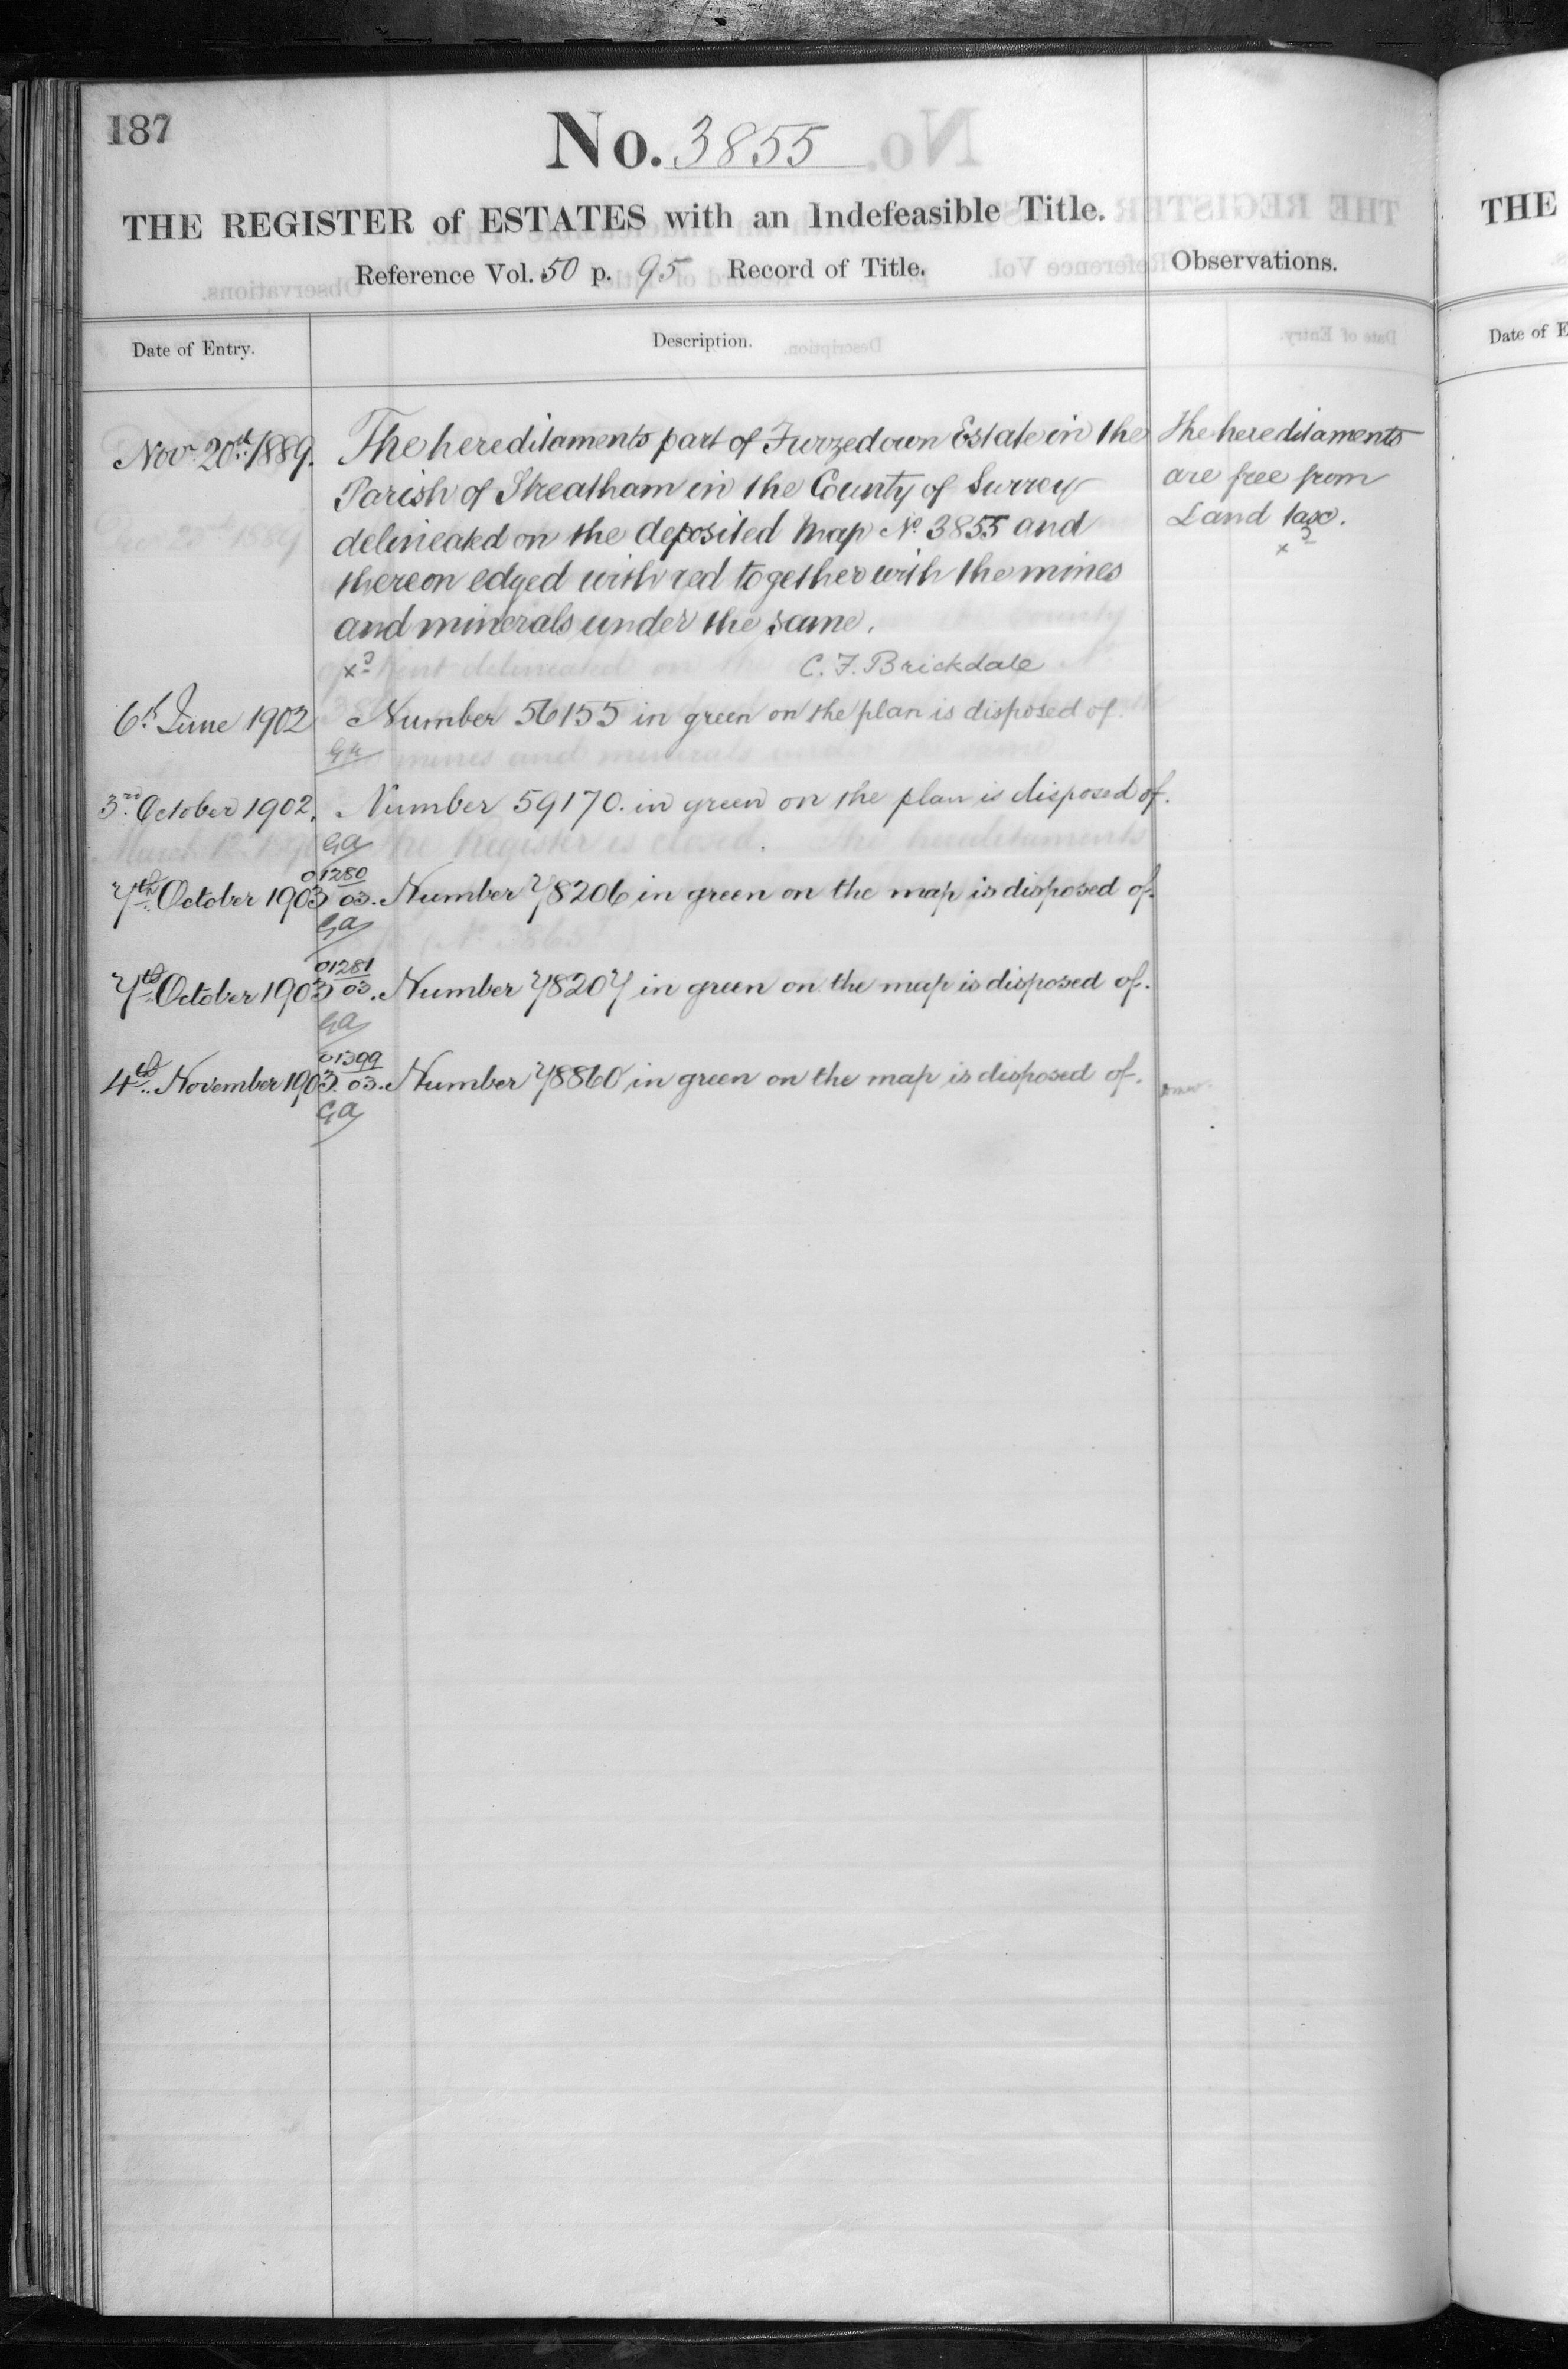 187
No. 3855
THE REGISTER of ESTATES with an Indefeasible Title.
Reference Vol. 50 p. 95 Record of Title.
Observations.
Date of Entry.
Description.
Nov. 20th 1889.
The hereditaments part of Furzedown Estate in the
Parish of Streatham in the County of Surrey
delineated on the deposited Map No. 3855 and
thereon edged with red together with the mines
and minerals under the same.
C. F. Brickdale
The hereditaments
are free from
Land tax.
6th June 1902
Number 56155 in green on the plan is disposed of.
3rd October 1902.
Number 59170. in green on the plan is disposed of.
GA
7th October 1903
01280
03. Number 78206 in green on the map is disposed of.
GA
7th October 1903
01281
03. Number 78207 in green on the map is disposed of.
GA
4th November 1903
01399
03. Number 78860 in green on the map is disposed of.
GA
THE
Date of E